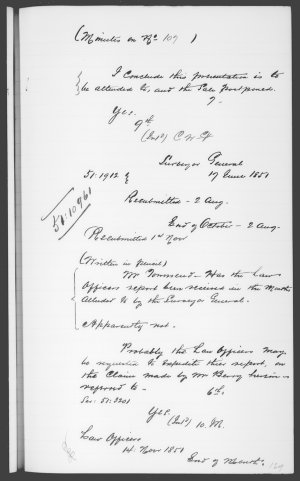 (Minutes on No. 107 )
I conclude this presentation is to
be attended to, and the Sale postponed.
?.
Yes.
9th
(Intd)
Surveyor General
51.1912 17 June 1851
Resubmitted – 2 Aug.
51:10961
End of October – 2 Aug.
Resubmitted 1st Nov
(Written in pencil)
Mr Townsend – Has the Law
Officers report been received in the Matter
alluded to by the Surveyor General.
Apparently not.
Probably the Law Officers may
be requested to expedite their report, on
the Claim made by Mr Berry herein
referred to – 6th.
Sur: 51:
Yes
(Intd)
Law Officers
14. Nov 1851
End of Month.